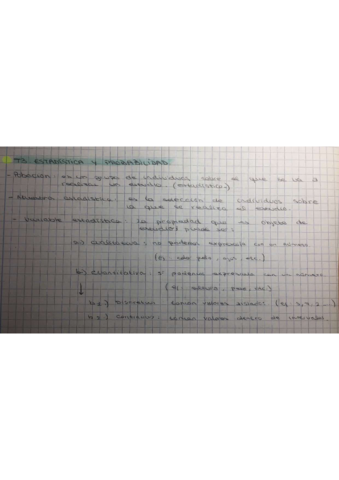 T5 ESTADÍSTICA Y PROBABILIDAD
- Población: es un grupo de individuos sobre el que se va a
realizar un estudio (estadístico.)
- Muestra estadística: es la selección de individuos sobre
la que se realiza el estudio.
- Variable estadística: la propiedad que es objeto de
estudio) puede ser:
a) cualitativa: no podemos expresarlo con un número
(Ej. color pelo, ojos, etc.)
b) cuantitativa: si podemos expresarlo con un número
(Ej. altura, peso, etc.)
b.1) Discretas: valores aislados (Ej. 1, 2 ...)
b.2) Continuas: valores dentro de intervalos